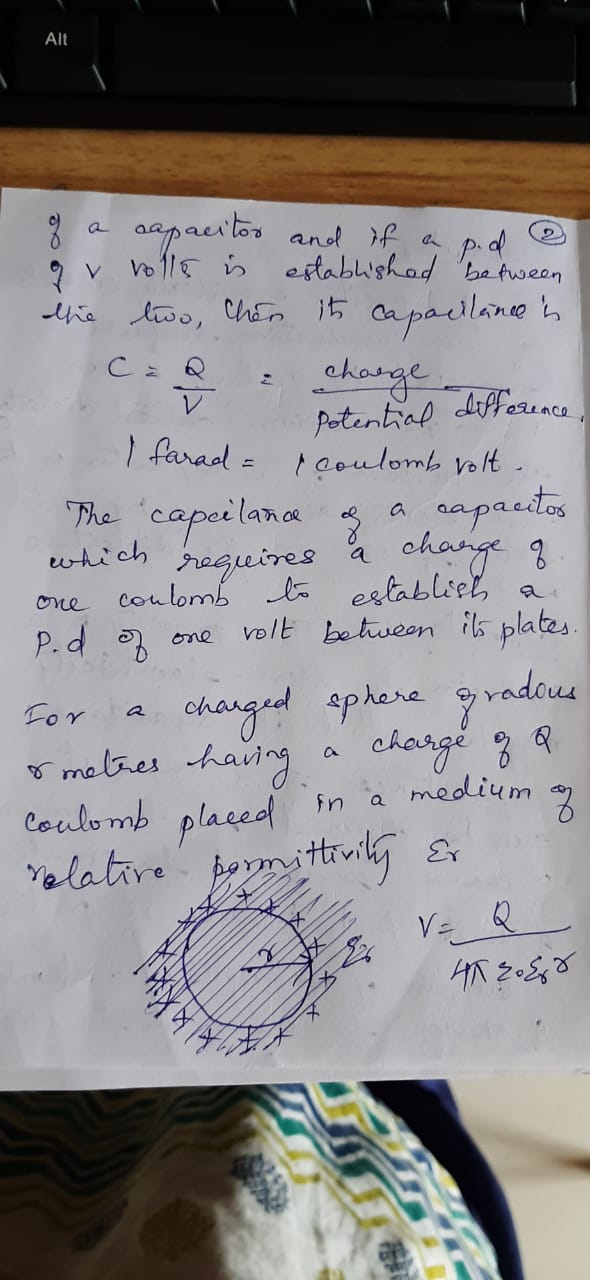 Alt
of a capacitor and if a p.d ②
of v volts is established between
the two, then its capacitance is
C = Q/V = charge/Potential difference.
1 farad = 1 coulomb volt.
The capcilance of a capacitor
which requires a charge of
one coulomb to establish a
P.d of one volt between its plates.
For a charged sphere of radous
r metres having a charge of Q
Coulomb placed in a medium of
relative permittivity εr
r εr V = Q/4π ε0 εr r